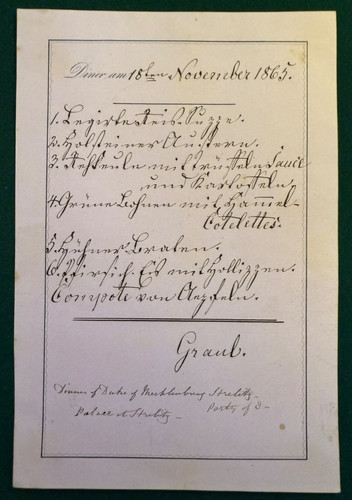 Diner am 18ten November 1865.
1. Legirte Reis-Suppe.
2. Holsteiner Austern.
3. Rehkeule mit Trüffeln Sauce
und Kartoffeln,
4. Grüne Bohnen mit Ham̄el-
Cotelettes.
5. Hühner Braten.
6. Pfirsich-Eis mit Hollippen.
Compott von Aepfeln.
Graul.
Dinner of Duke of Mecklenburg Strelitz
Palace at Strelitz - Party of